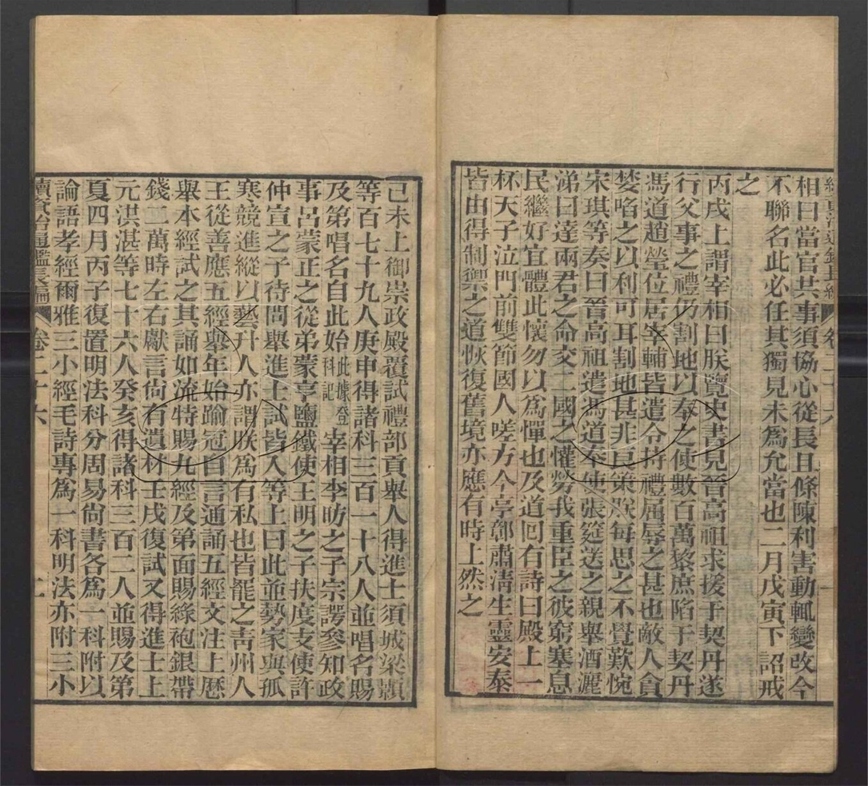 相曰當官共事須協心從長且條陳利害動輒變改今
不聯名此必任其獨見未爲允當也二月戊寅下詔戒
之
丙戌上謂宰相曰朕覽史書見晉高祖求援于契丹遂
行父事之禮仍割地以奉之使數百萬黎庶陷于契丹
馮道趙瑩位居宰輔皆遣令持禮屈辱之甚也敵人貪
婪啗之以利可耳割地甚非良策朕每思之不覺歎惋
宋琪等奏曰晉高祖遣馮道奉使張筵送之親舉酒灑
涕曰達兩君之命交二國之懽勞我重臣之彼窮塞息
民繼好宜體此懷勿以爲憚也及道回有詩曰殿上一
杯天子泣門前雙節國人嗟方今亭鄣肅清生靈安泰
皆由得制禦之道恢復舊境亦應有時上然之
己未上御崇政殿覆試禮部貢舉人得進士須城梁顥
等百七十九人庚申得諸科三百一十八人並唱名賜
及第唱名自此始此據登科記宰相李昉之子宗諤參知政
事呂蒙正之從弟蒙亨鹽鐵使王明之子扶度支使許
仲宣之子待問舉進士試皆入等上曰此並勢家與孤
寒競進縱以藝升人亦謂朕爲有私也皆罷之靑州人
王從善應五經舉年始踰冠自言通誦五經文注上歷
舉本經試之其誦如流特賜九經及第面賜綠袍銀帶
錢二萬時左右獻言尙有遺材壬戌復試又得進士上
元洪湛等七十六人癸亥得諸科三百二人並賜及第
夏四月丙子復置明法科分周易尙書各爲一科附以
論語孝經爾雅三小經毛詩專爲一科明法亦附三小
續資治通鑑長編 卷二十六 二